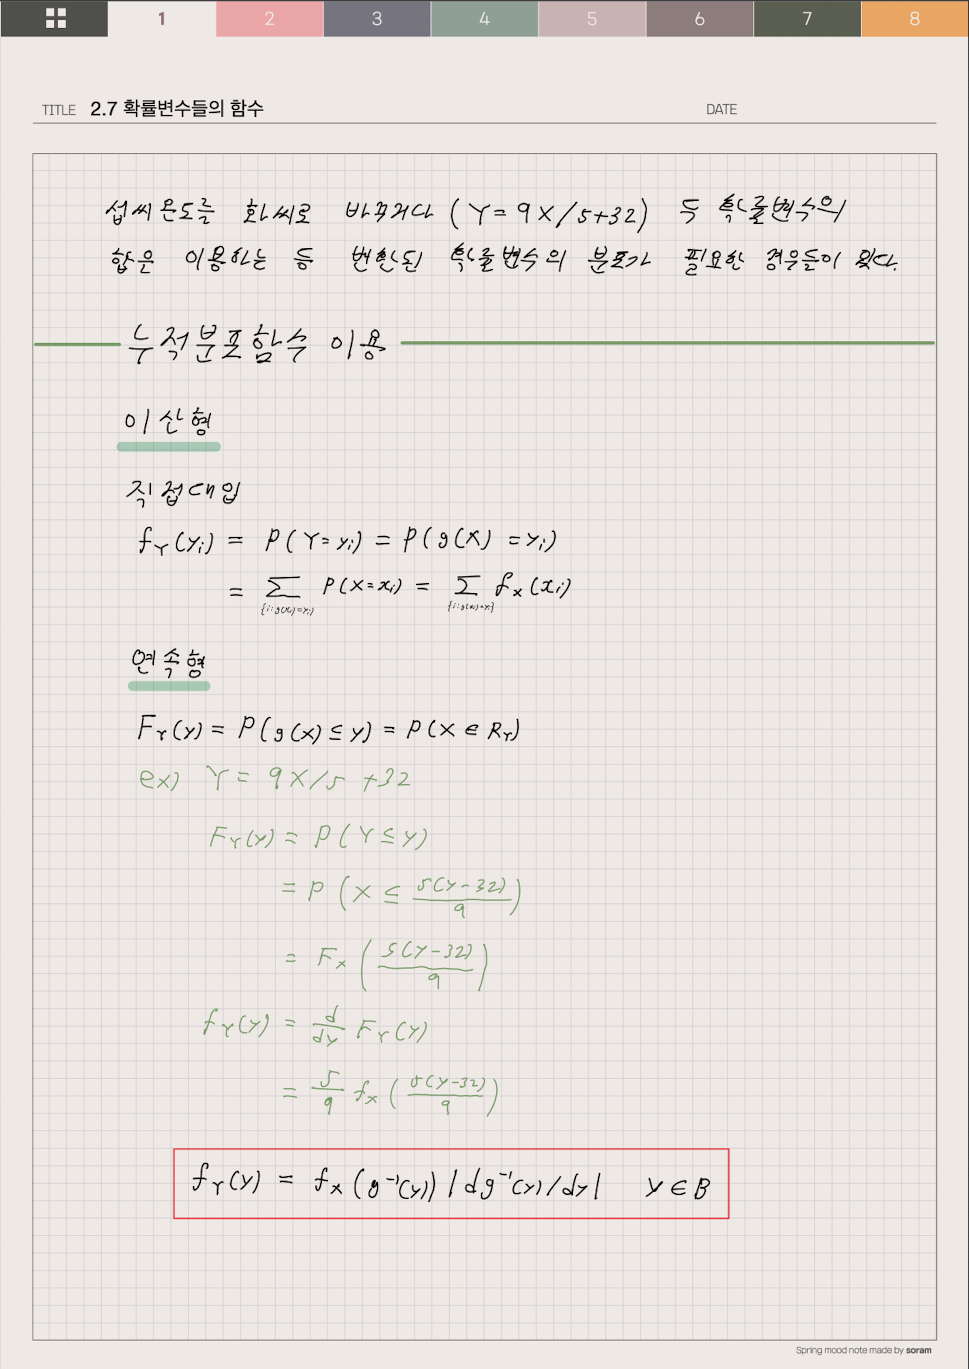 1 2 3 4 5 6 7 8
TITLE 2.7 확률변수들의 함수 DATE
섭씨온도를 화씨로 바꾸거나 (Y=9X/5+32) 두 확률변수의
합은 이용하는 등 변환된 확률변수의 분포가 필요한 경우들이 있다.
누적분포함수 이용
이산형
직접대입
f_Y(y_i) = P(Y=y_i) = P(g(X)=y_i)
= Σ_{i:g(x_i)=y_i} P(X=x_i) = Σ_{i:g(x_i)=y_i} f_X(x_i)
연속형
F_Y(y) = P(g(X)≤y) = P(X∈R_Y)
ex) Y = 9X/5 +32
F_Y(y) = P(Y≤y)
= P(X ≤ 5(y-32)/9)
= F_X(5(y-32)/9)
f_Y(y) = d/dy F_Y(y)
= 5/9 f_X(5(y-32)/9)
f_Y(y) = f_X(g⁻¹(y)) |dg⁻¹(y)/dy| y∈B
Spring mood note made by soram